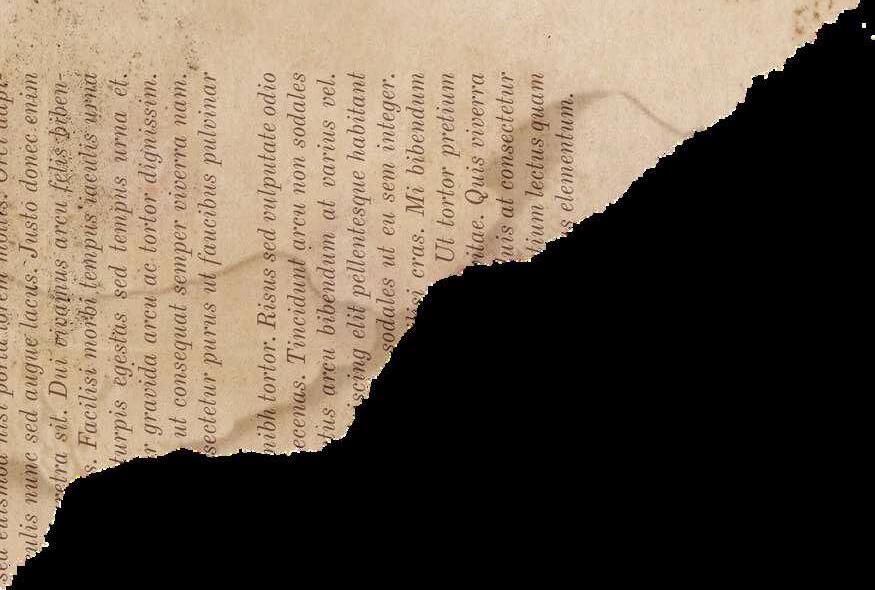 sed euismod nisi porta lorem mollis. Orci dapi-
culis nunc sed augue lacus. Justo donec enim
retra sit. Dui vivamus arcu felis biben-
s. Facilisi morbi tempus iaculis urna
turpis egestas sed tempus urna et.
r gravida arcu ac tortor dignissim.
ut consequat semper viverra nam.
sectetur purus ut faucibus pulvinar
nibh tortor. Risus sed vulputate odio
ecenas. Tincidunt arcu non sodales
tus arcu bibendum at varius vel.
iscing elit pellentesque habitant
sodales ut eu sem integer.
ilisi cras. Mi bibendum
Ut tortor pretium
itae. Quis viverra
uis at consectetur
tium lectus quam
s elementum.